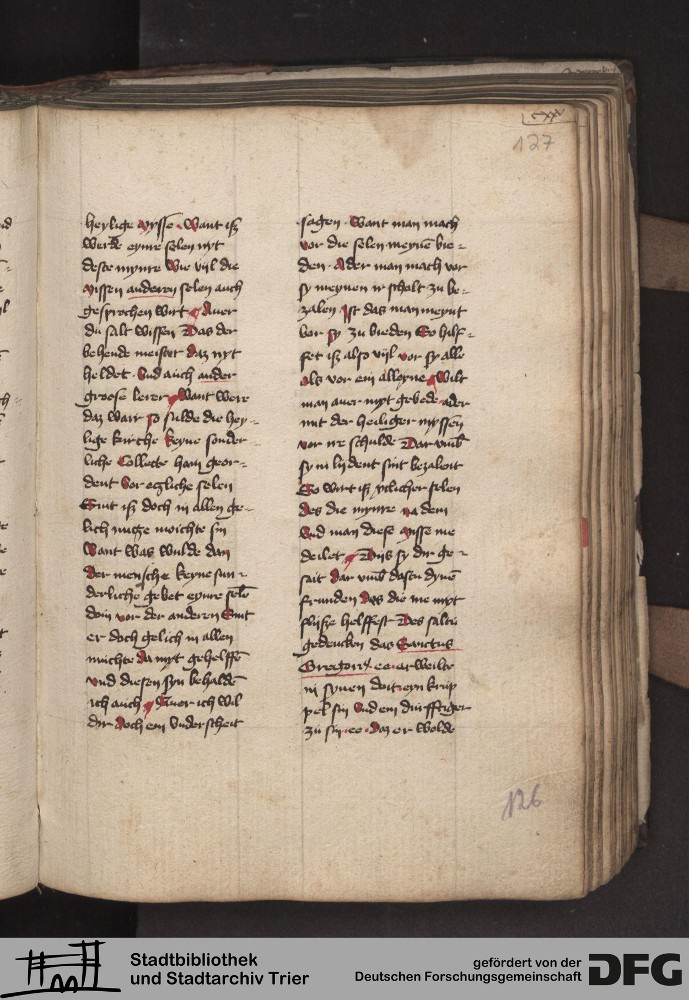 cxxv
127
heylige mysse. Want iß
werde eynre selen nyt
deste mynre Wie viil die
missen anderen selen auch
gesprochen wirt Auer
du salt wissen Das der
behende meister daz nyt
heldet. Und auch ander
groose lerer Want were
daz wair so sulde die hey-
lige kirche keyne sonder-
liche Collecte han geor-
dent vor egliche selen
Sint iß doch in allen ge-
lich nutze moichte sin
Want was wulde dan
der mensche keyne sun-
derliche gebet eynre selē
doin vor der anderen Sint
er doch gelich in allen
muchte da myt gehelffē
Und diesen syn behaldē
ich auch Auer ich wil
dir doch ein underscheit
sagen. Want man mach
vor die selen meynē bie-
den. Ader man mach vor
sy meynen ir scholt zu be-
zalen Ist das man meynt
vor sy zu bieden So hilf-
fet iß also viil vor sy alle
als vor ein alleyne Wilt
man auer myt gebede ader
mit der heiliger myssen
vor ire schulde Dar vmb
sy in lydent sint bezalent
So wirt iß yclicher selen
des die mynre na dem
Und man diese misse me
deilet Diis sy dir ge-
sait dar vmb dastu dynē
frunden des die me myt
flysze helffest Des saltu
gedencken das Sanctus
Gregorius ee er weilte
in synen doit eyn krup
pel sin Und ein durfftiger
zu sin ee daz er wolde
126
Stadtbibliothek
und Stadtarchiv Trier
gefördert von der
Deutschen Forschungsgemeinschaft
DFG